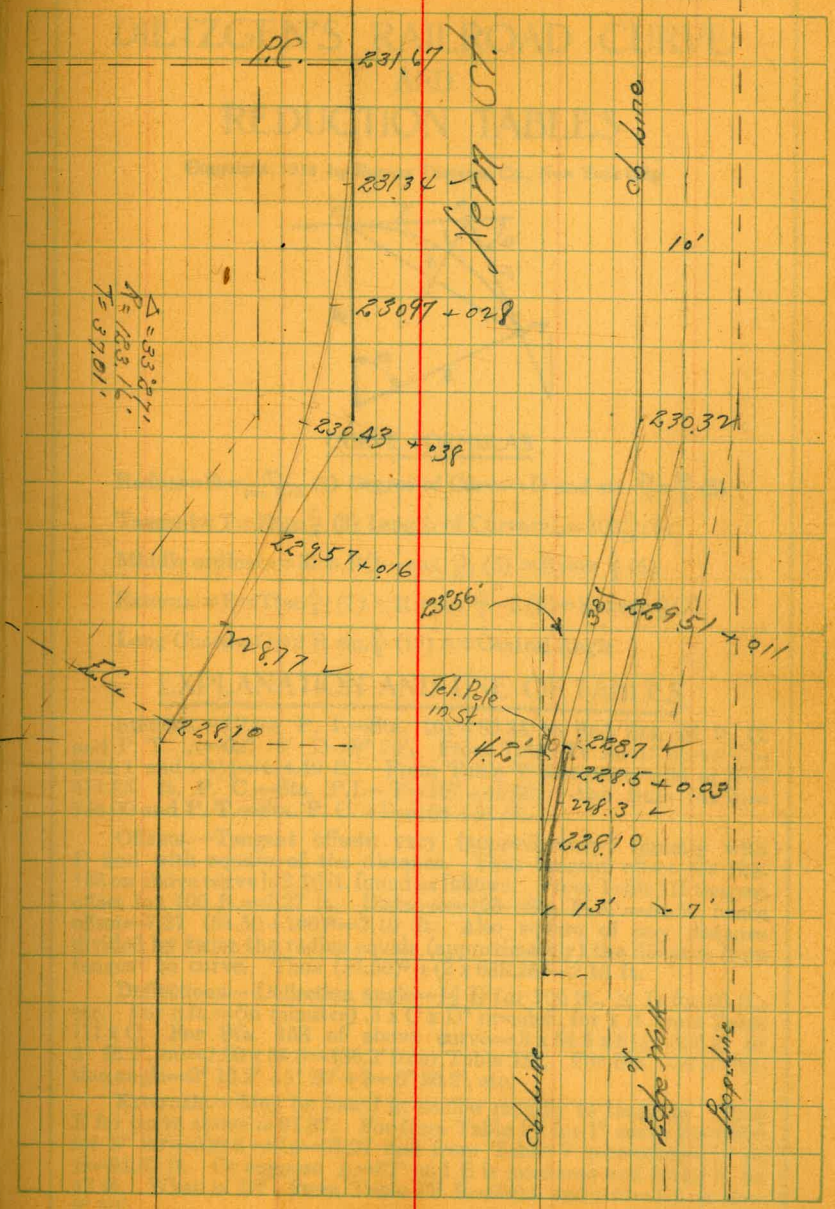 P.C.
231.67
Kern St.
Cb. Line
231.34 ✓
10'
230.97 + 028
Δ = 33°27'
R = 123.16'
T = 37.01'
230.43 + .038
230.32
229.57 + .016
23°56'
38'
229.51 + .011
228.77 ✓
E.C.
228.10
Tel. Pole
in St.
4.2'
228.7 ✓
228.5 + 0.03
228.3 ✓
228.10
13'
7'
Cb. Line
Edge of Walk
Prop. Line